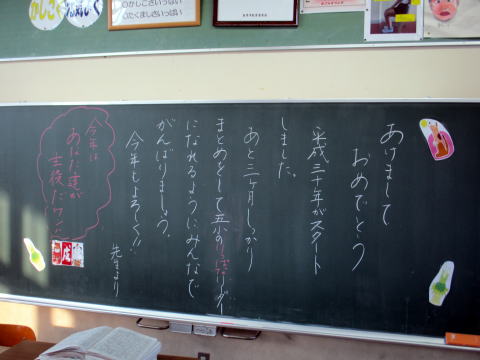 かしこく
かしこさいっぱい
たくましさいっぱい
あけまして
おめでとう
平成三十年がスタート
しました。
あと三ヶ月しっかり
まとめをして五小のりっぱなリーダー
になれるようにみんなで
がんばりましょう。
今年もよろしく!!
先生より
今年は
あなた達が
主役だワン!!